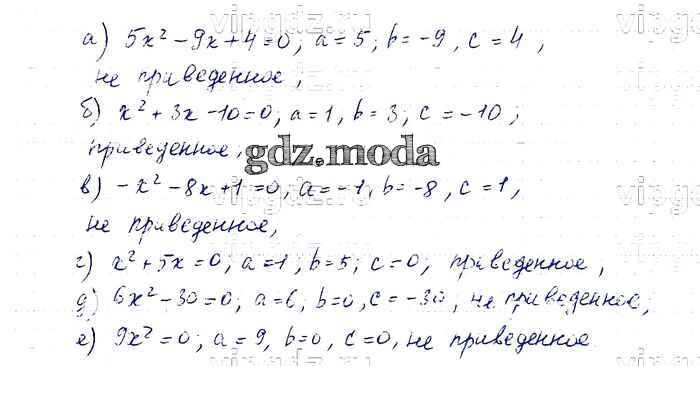 vipgdz.ru vipgdz.ru
а) 5x² - 9x + 4 = 0; a = 5; b = -9, c = 4,
не приведенное,
б) x² + 3x - 10 = 0; a = 1, b = 3; c = -10;
приведенное,
gdz.moda
в) -x² - 8x + 1 = 0, a = -1, b = -8, c = 1,
не приведенное,
г) x² + 5x = 0; a = 1, b = 5; c = 0, приведенное,
д) 6x² - 30 = 0; a = 6, b = 0, c = -30, не приведенное,
е) 9x² = 0; a = 9, b = 0, c = 0, не приведенное
vipgdz.ru vipgdz.ru